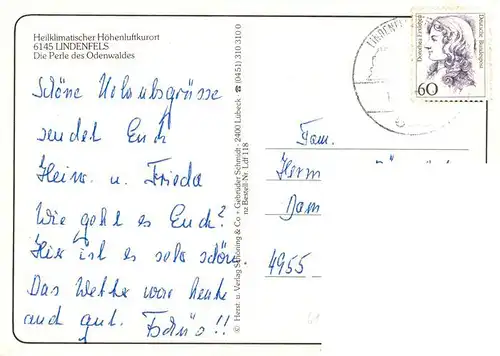 Heilklimatischer Höhenluftkurort
6145 LINDENFELS
Die Perle des Odenwaldes
Schöne Urlaubsgrüsse
sendet Euch
Heinr. u. Frieda
Wie geht es Euch?
Hier ist es sehr schön.
Das Wetter war heute
auch gut. Tschüs!!
© Herst. u. Verlag Schöning & Co + Gebrüder Schmidt · 2400 Lübeck ☎ (0451) 310 310 0
nz Bestell-Nr. Ldf 118
Deutsche Bundespost
60
Fam.
Herm
Dam
4955